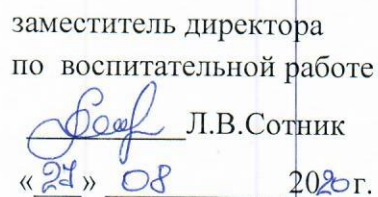 заместитель директора
по воспитательной работе
Л.В.Сотник
«27» 08 2020г.